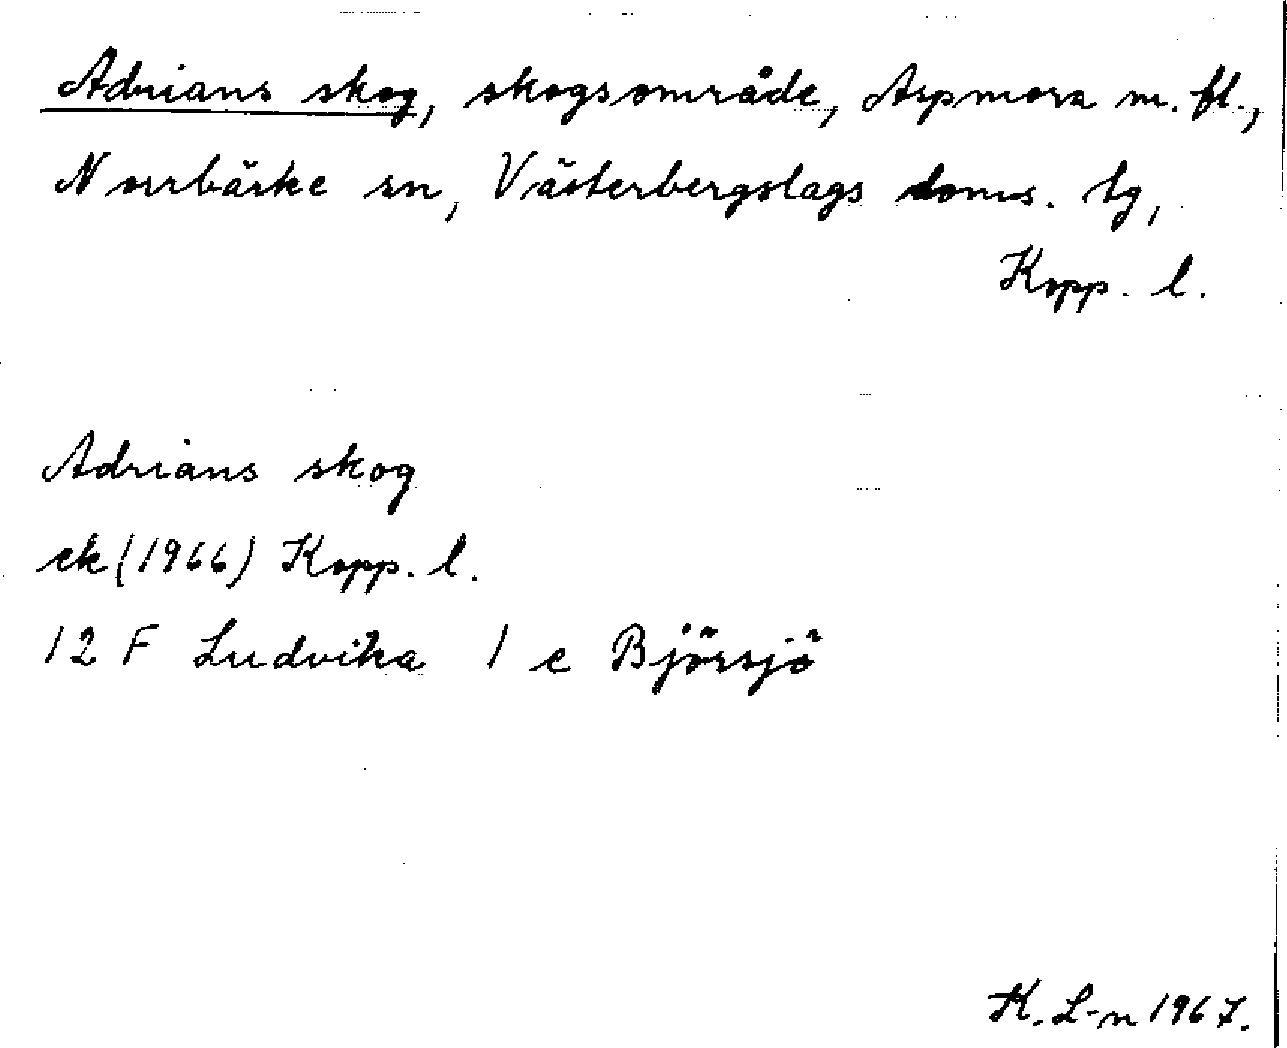 Adrians skog, skogsområde, Aspmora m. fl.,
Norrbärke sn, Västerbergslags doms. lg,
Kopp. l.
Adrians skog
ek (1966) Kopp. l.
12 F Ludvika 1 e Björsjö
K. L-n 1967.